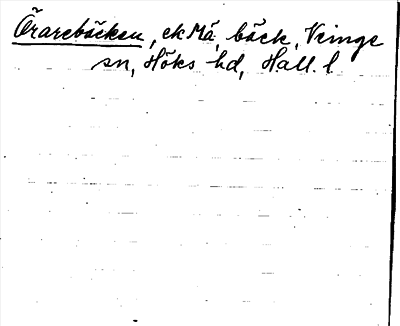 Örarebäcken, ek Må, bäck, Veinge
sn, Höks hd, Hall. l